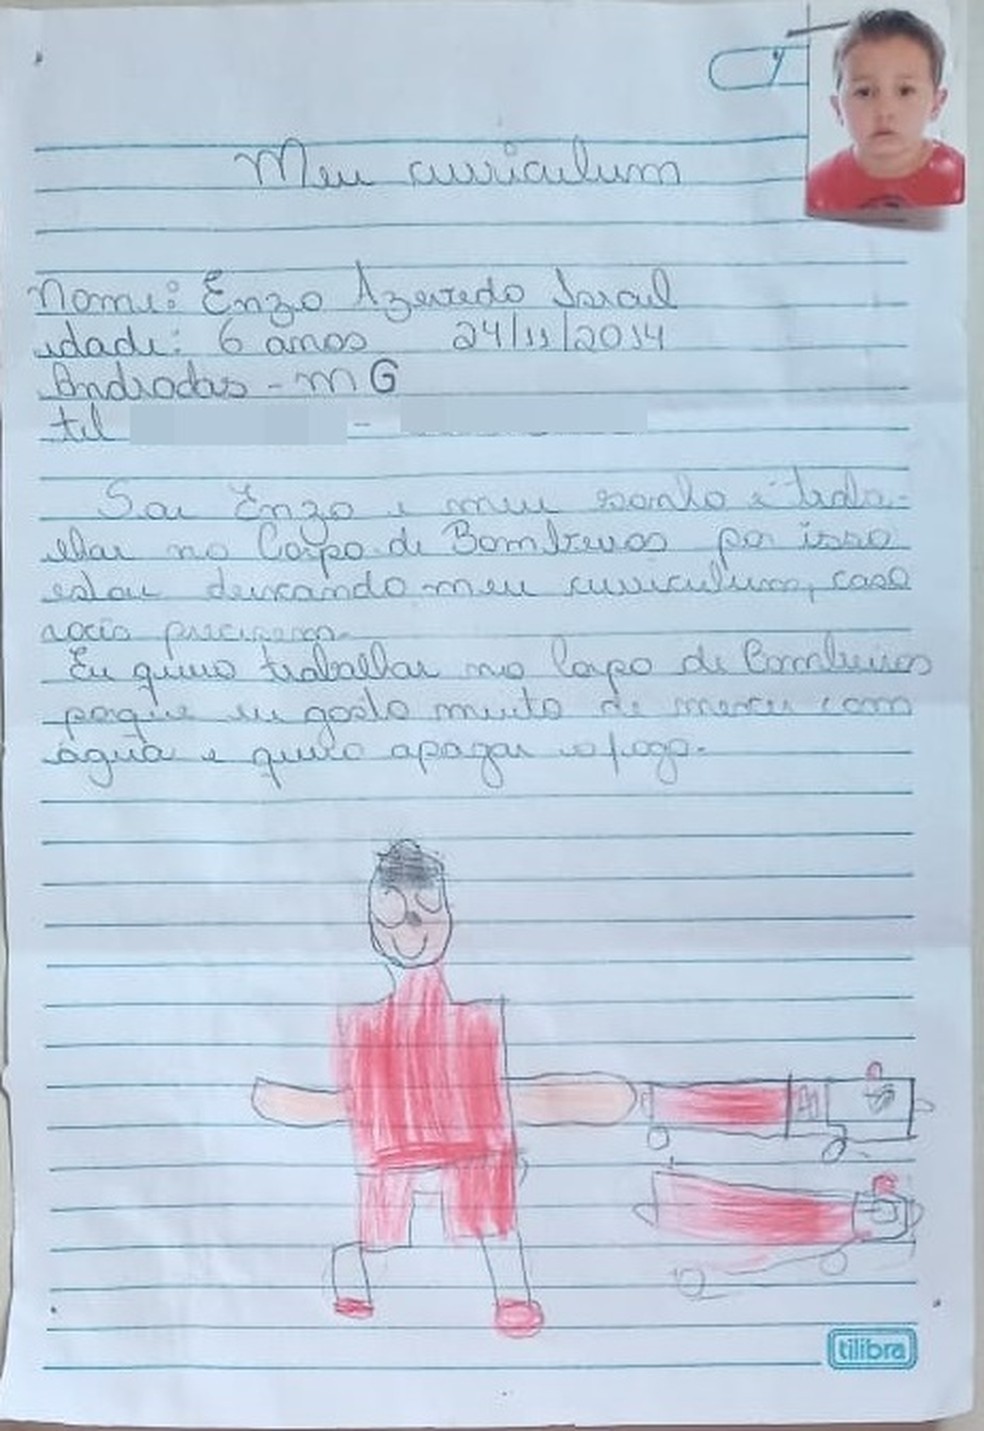 Meu curriculum
Nome: Enzo Azevedo Israel
idade: 6 anos 24/11/2014
Andradas - MG
tel -
Sou Enzo e meu sonho é traba-
lhar no Corpo de Bombeiros por isso
estou deixando meu curriculum, caso
vocês precisem.
Eu quero trabalhar no Corpo de Bombeiros
porque eu gosto muito de mexer com
água e quero apagar o fogo.
tilibra